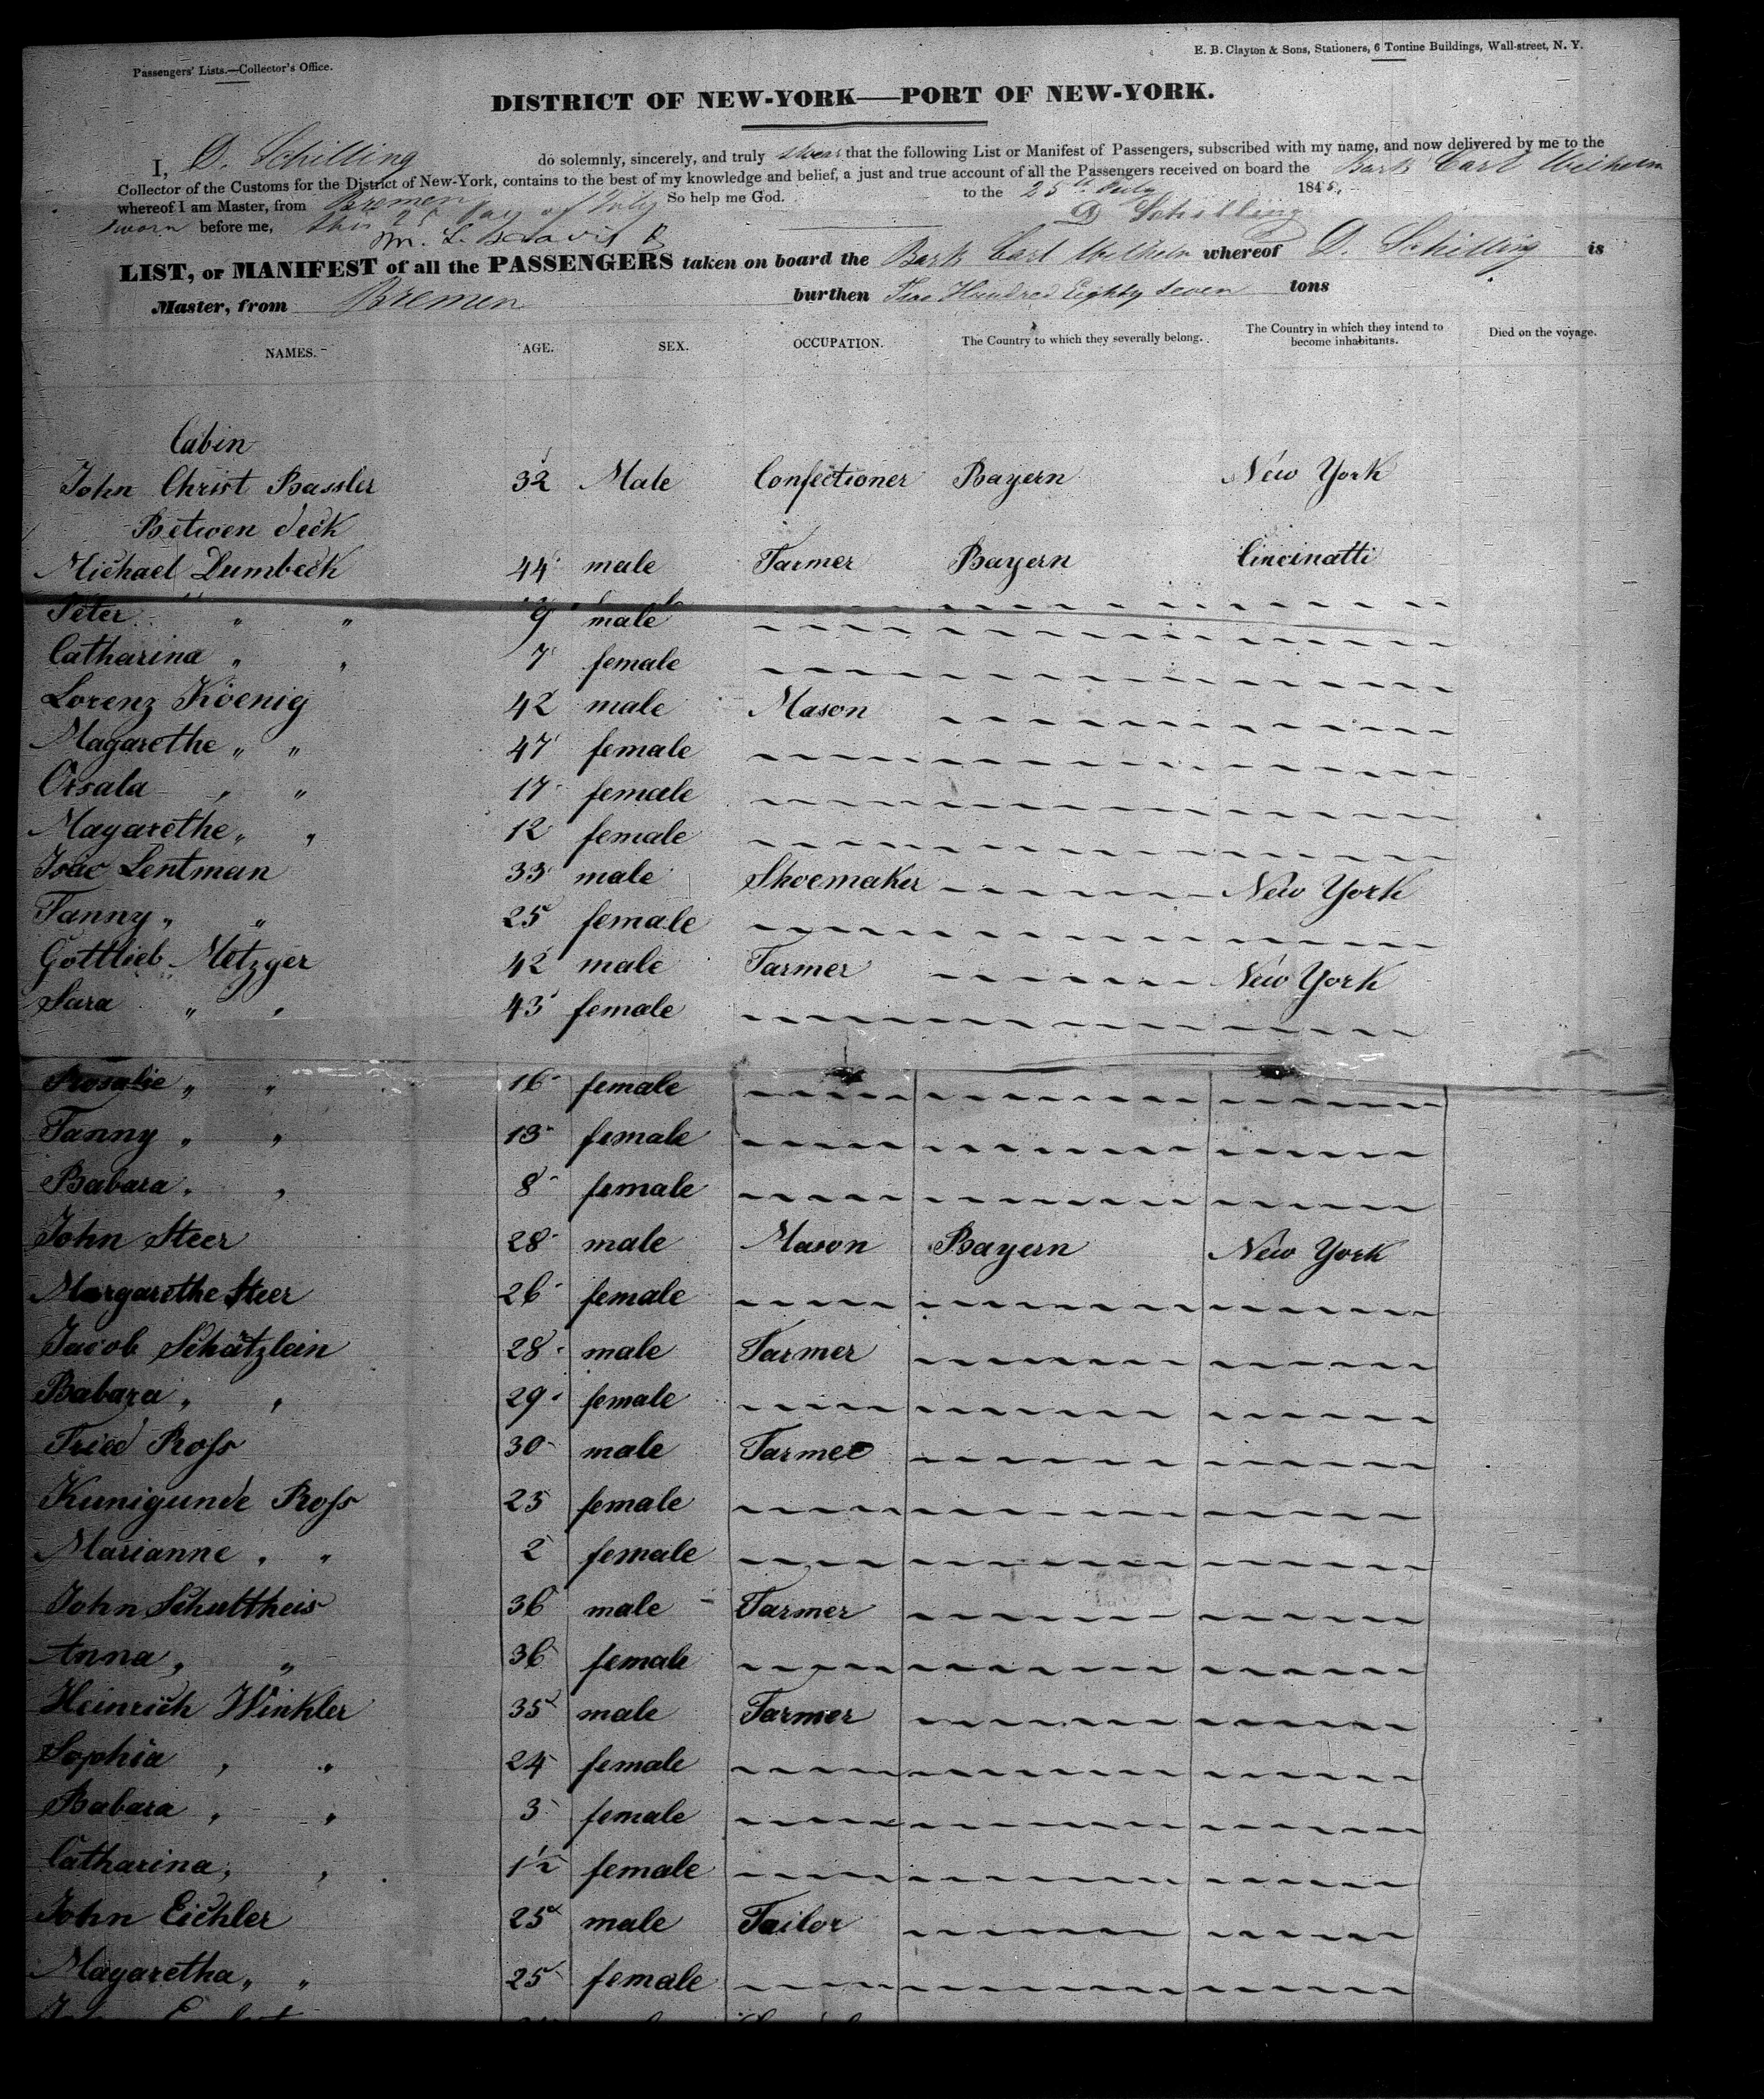 Passengers' Lists.—Collector's Office.
E. B. Clayton & Sons, Stationers, 6 Tontine Buildings, Wall-street, N. Y.
DISTRICT OF NEW-YORK—PORT OF NEW-YORK.
I, D. Schilling do solemnly, sincerely, and truly swear that the following List or Manifest of Passengers, subscribed with my name, and now delivered by me to the
Collector of the Customs for the District of New-York, contains to the best of my knowledge and belief, a just and true account of all the Passengers received on board the Bark Carl Wilhelm
whereof I am Master, from Bremen to the 25th July 1845.
So help me God.
Sworn before me, this 25 day of July D Schilling
LIST, or MANIFEST of all the PASSENGERS taken on board the Bark Carl Wilhelm whereof D. Schilling is
Master, from Bremen burthen Two Hundred Eighty Seven tons
NAMES. AGE. SEX. OCCUPATION. The Country to which they severally belong. The Country in which they intend to become inhabitants. Died on the voyage.
Cabin
John Christ Bassler 32 Male Confectioner Bayern New York
Betwen deck
Michael Dumbeck 44 male Farmer Bayern Cincinatti
Peter " " 9 male
Catharina " " 7 female
Lorenz Koenig 42 male Mason
Magarethe " " 47 female
Orsala " " 17 female
Magarethe " " 12 female
Isac Lentman 33 male Shoemaker New York
Fanny " " 25 female
Gottlieb Metzger 42 male Farmer New York
Sara " " 43 female
Rosalie " " 16 female
Fanny " " 13 female
Babara " " 8 female
John Steer 28 male Mason Bayern New York
Margarethe Steer 26 female
Jacob Schätzlein 28 male Farmer
Babara " " 29 female
Fried Ross 30 male Farmer
Kunigunde Ross 25 female
Marianne " " 2 female
John Schultheis 36 male Farmer
Anna " " 36 female
Heinrich Winkler 35 male Farmer
Sophia " " 24 female
Babara " " 3 female
Catharina " " 1½ female
John Eichler 25 male Tailor
Magaretha " " 25 female